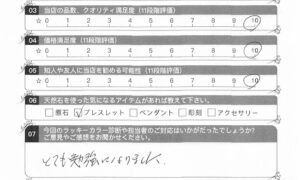 03 当店の品数、クオリティ満足度（11段階評価）
☆ 0 1 2 3 4 5 6 7 8 9 10
04 価格満足度（11段階評価）
☆ 0 1 2 3 4 5 6 7 8 9 10
05 知人や友人に当店を勧める可能性（11段階評価）
☆ 0 1 2 3 4 5 6 7 8 9 10
06 天然石を使った気になるアイテムがあれば教えて下さい。
□原石 ☑ブレスレット □ペンダント □彫刻 □アクセサリー
07 今回のラッキーカラー診断や担当者のご対応はいかがだったでしょうか？
ご意見やご感想をお聞かせください。
とても勉強になりました。